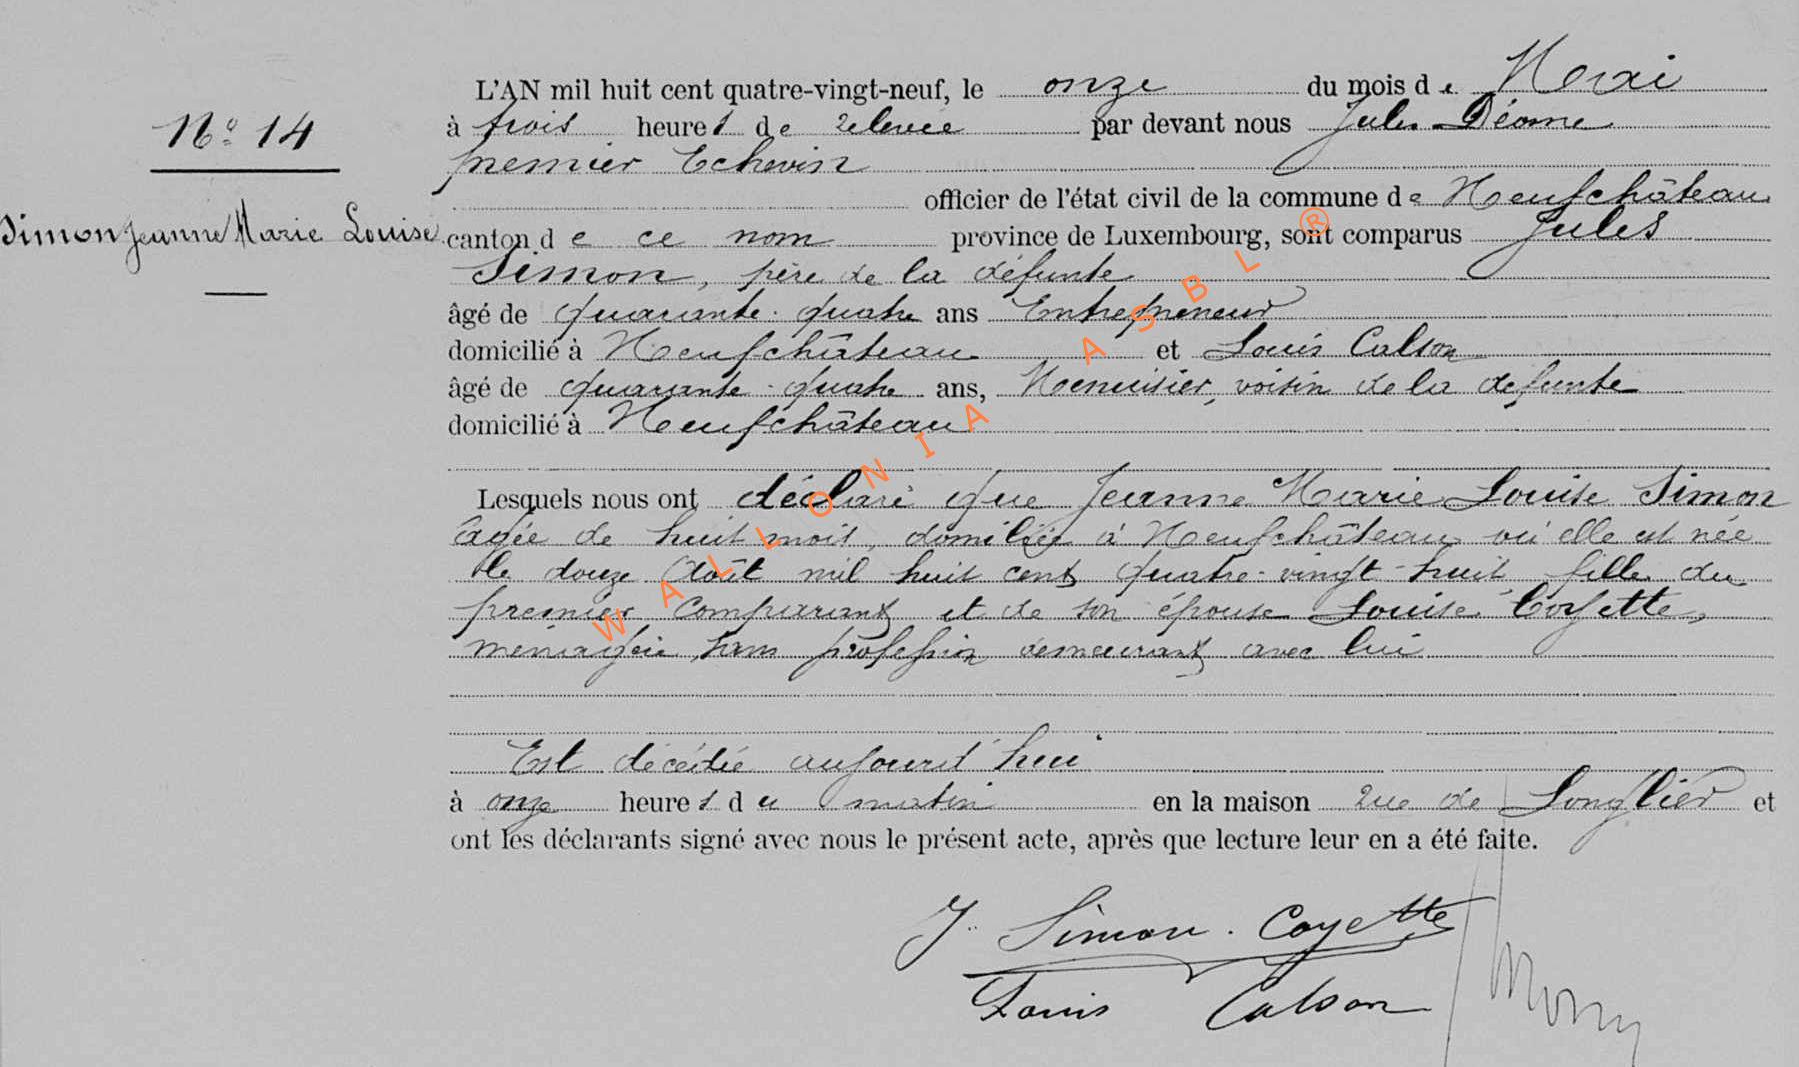 L'AN mil huit cent quatre-vingt-neuf, le onze du mois de Mai
N° 14
à trois heures de relevée par devant nous Jules Déome
premier Echevin
officier de l'état civil de la commune de Neufchâteau
Simon Jeanne Marie Louise
canton de ce nom province de Luxembourg, sont comparus Jules
Simon, père de la défunte
âgé de quarante-quatre ans Entrepreneur
domicilié à Neufchâteau et Louis Calson
âgé de quarante-quatre ans, Menuisier, voisin de la défunte
domicilié à Neufchâteau
Lesquels nous ont déclaré que Jeanne Marie Louise Simon
âgée de huit mois, domiciliée à Neufchâteau où elle est née
le douze Août mil huit cent quatre-vingt-huit fille du
premier comparant et de son épouse Louise Coyette,
ménagère, sans profession demeurant avec lui
Est décédée aujourd'hui
à onze heures du matin en la maison rue de Longlier et
ont les déclarants signé avec nous le présent acte, après que lecture leur en a été faite.
J. Simon. Coyette
Louis Calson
WALLONIA ASBL ®